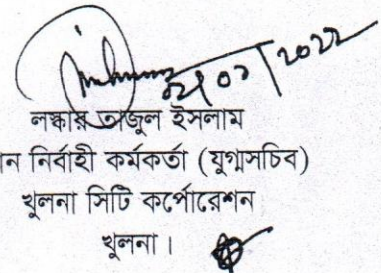 2022
লস্কার তাজুল ইসলাম
ান নির্বাহী কর্মকর্তা (যুগ্মসচিব)
খুলনা সিটি কর্পোরেশন
খুলনা।